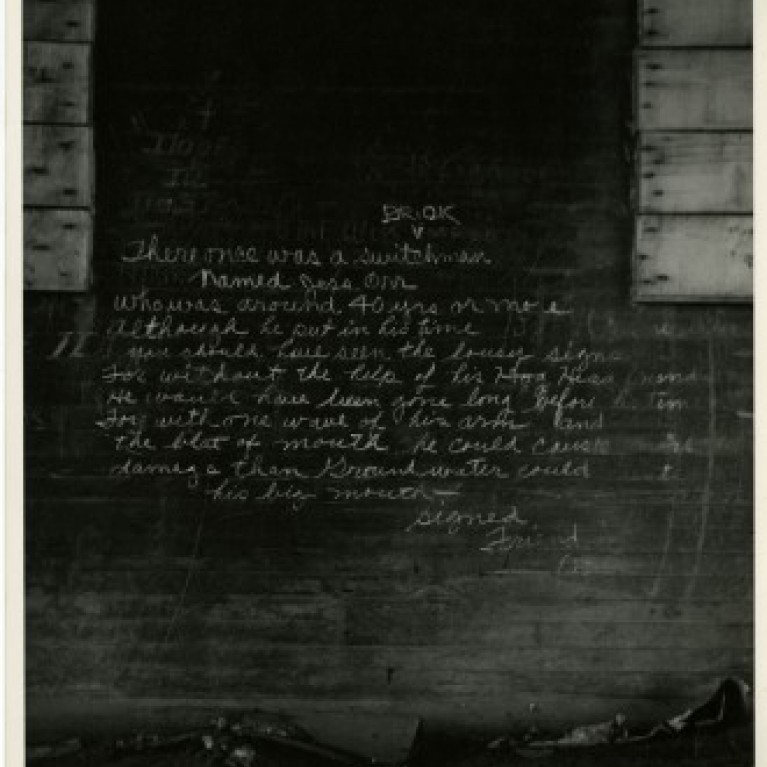 BRICK
There once was a switchman
Named Jess Orr
who was around 40 yrs or more
Although he put in his time
you should have seen the lousy signs
For without the help of his Hog Head
He would have been gone long before his Time
For with one wave of his arm and
the blat of mouth he could cause more
damage than Groundwater could
his big mouth —
signed
Friend